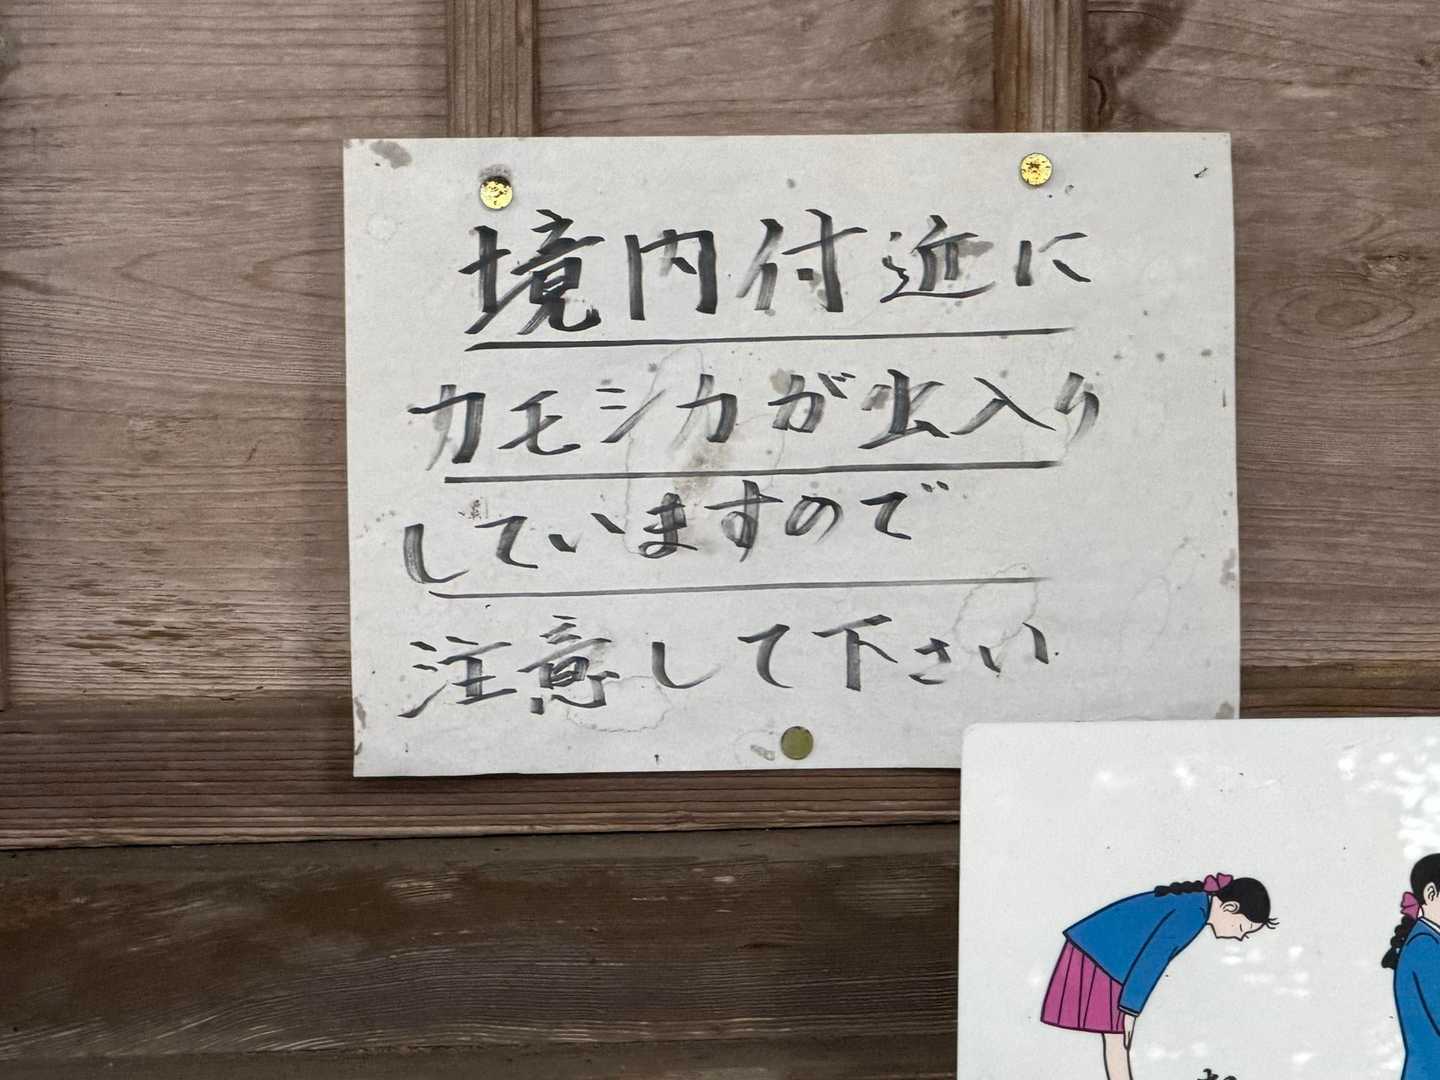 境内付近に
カモシカが出入り
していますので
注意して下さい